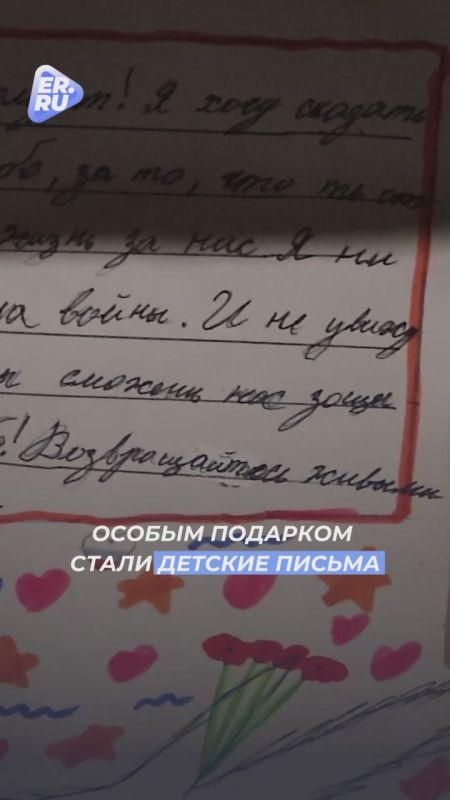 ER.
RU
! Я хочу сказать
, за то, что ты
жизнь за нас Я ни
войны. И не увижу
сможешь нас защи
! Возвращайтесь живыми
ОСОБЫМ ПОДАРКОМ
СТАЛИ ДЕТСКИЕ ПИСЬМА